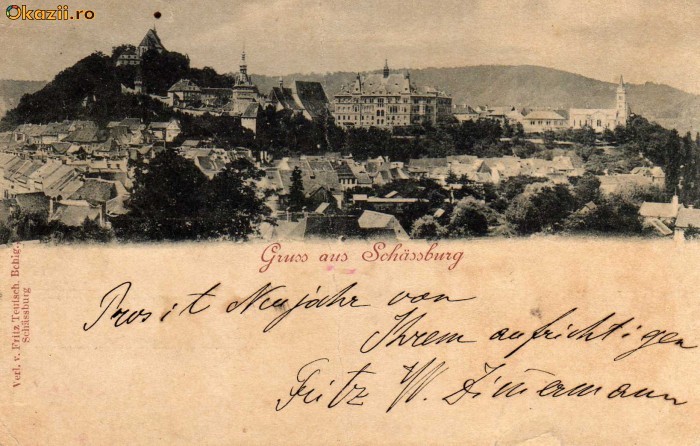 Okazii.ro
Gruss aus Schässburg
Verl. v. Fritz Teutsch. Bchlg.
Schässburg
Prosit Neujahr von
Ihrem aufrichtigen
Fritz W. Zimmermann